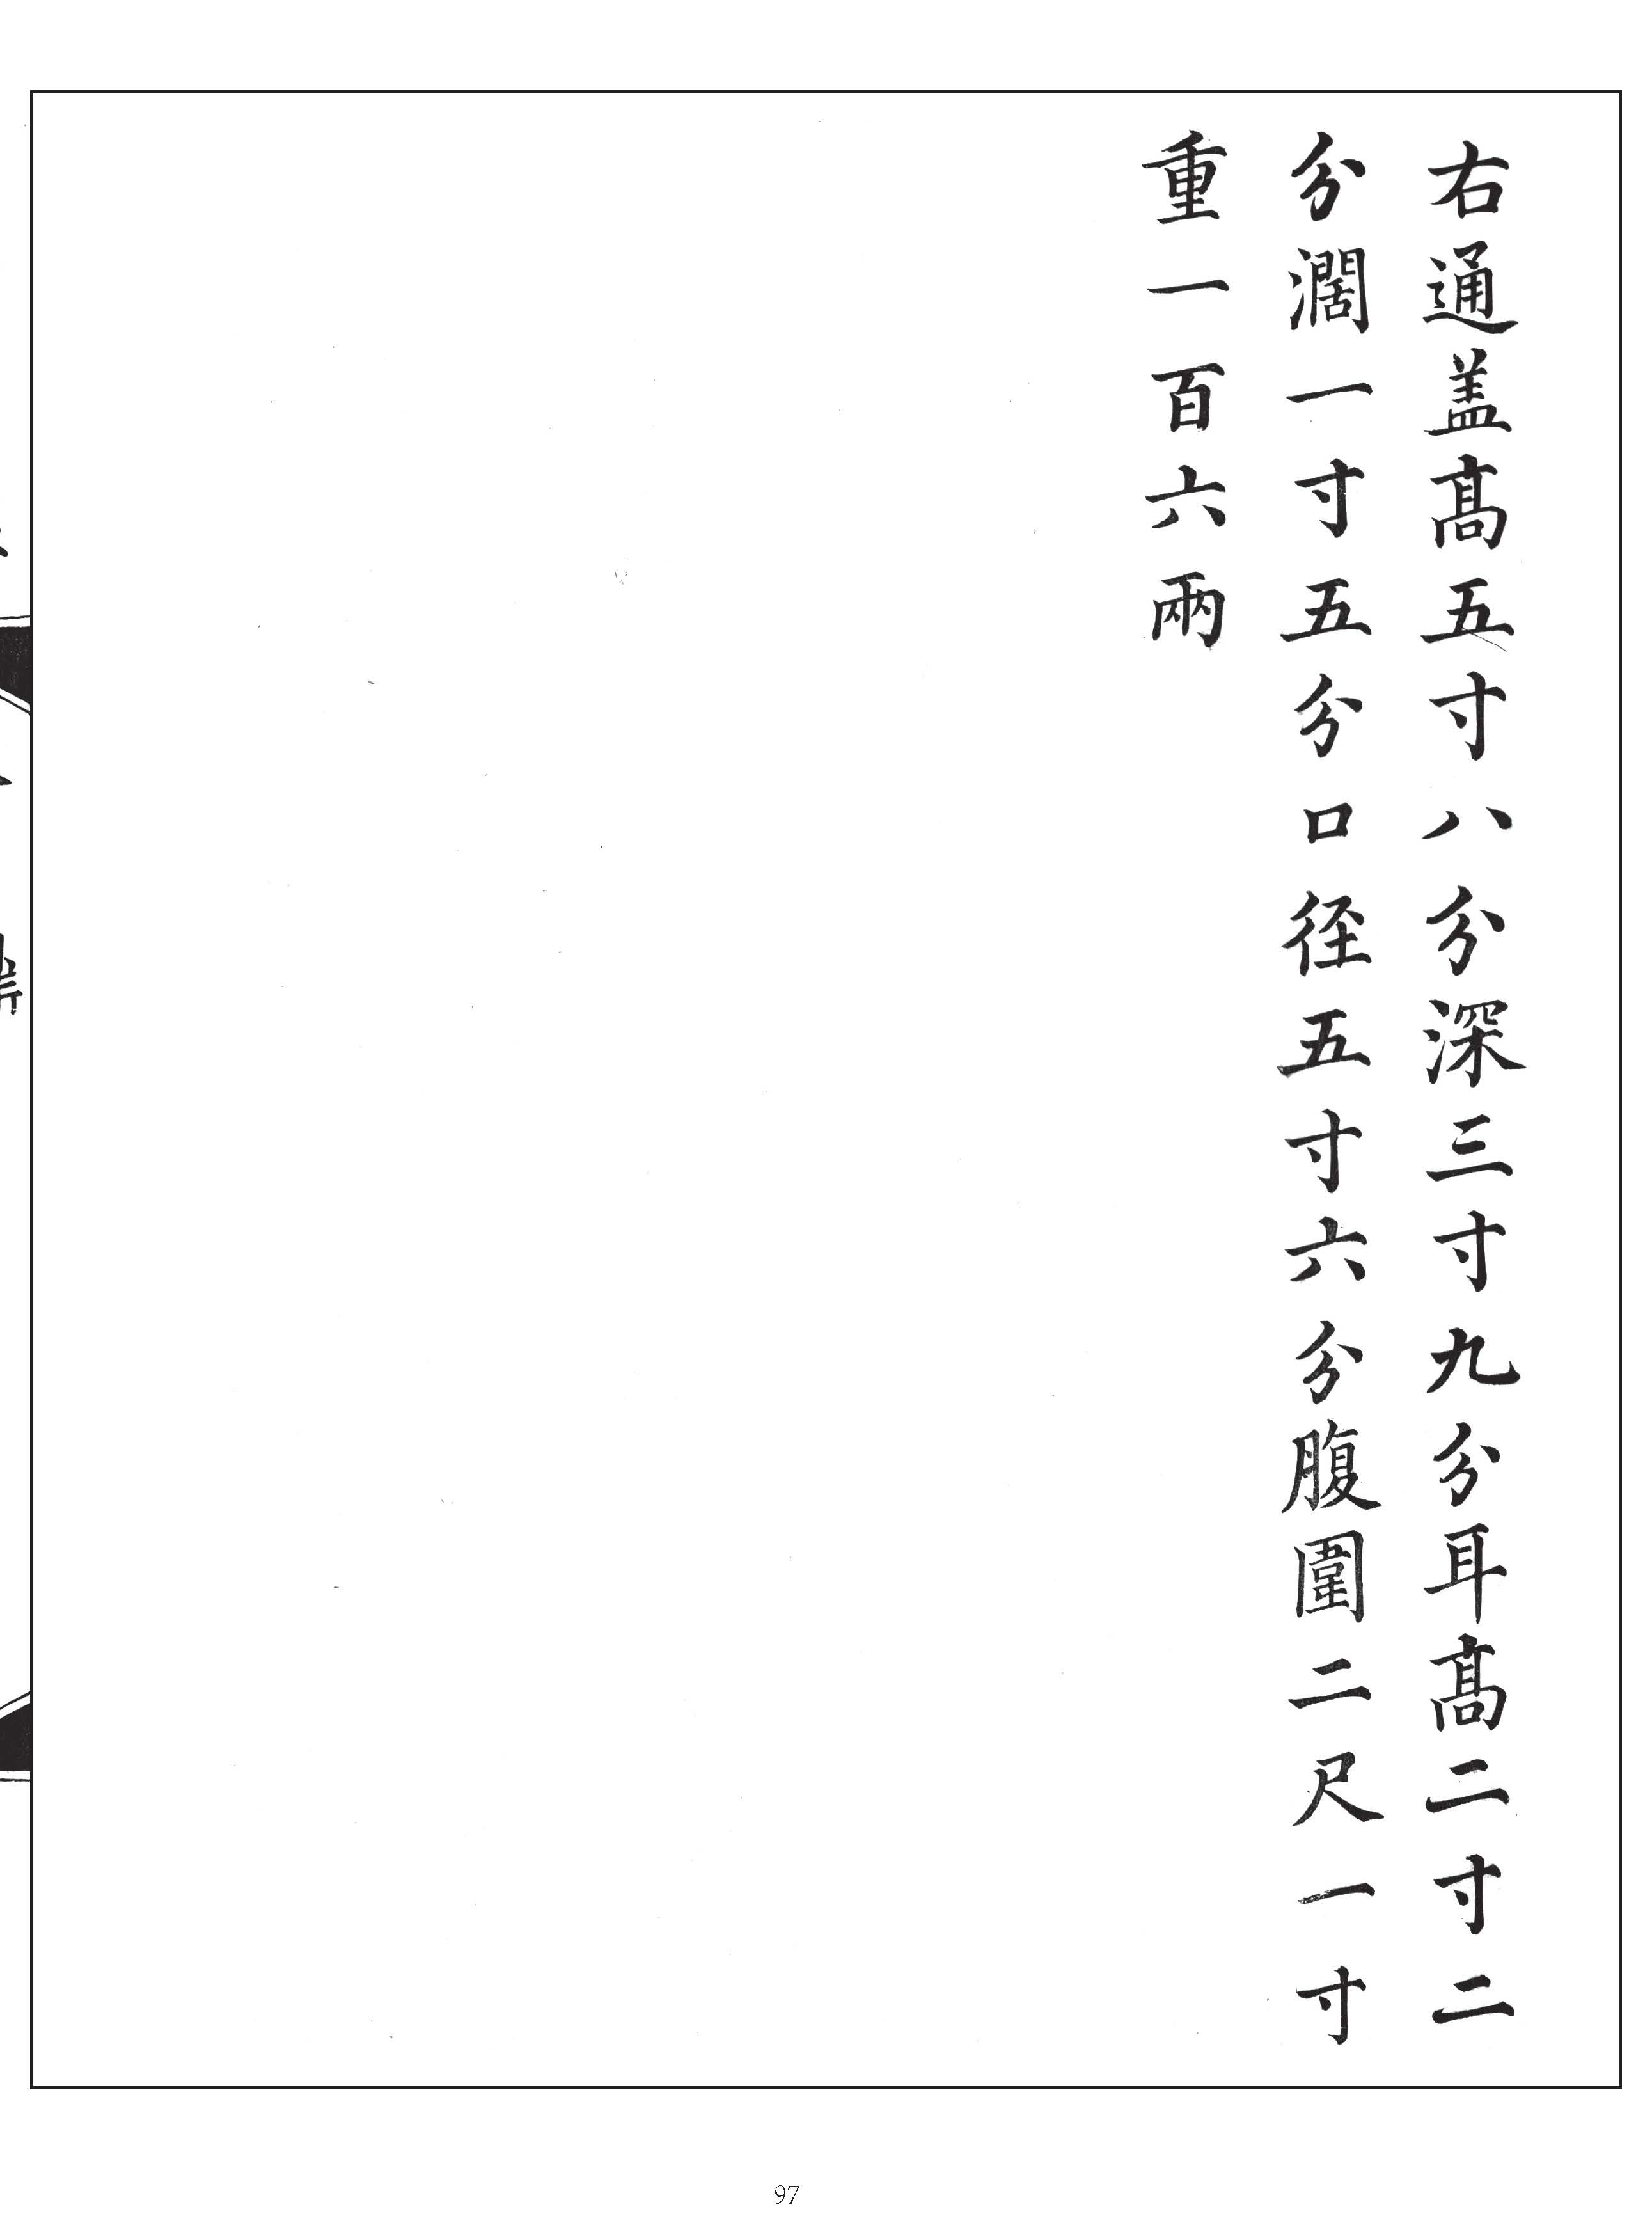 右通盖髙五寸八分深三寸九分耳髙二寸二
分濶一寸五分口径五寸六分腹圍二尺一寸
重一百六兩
97